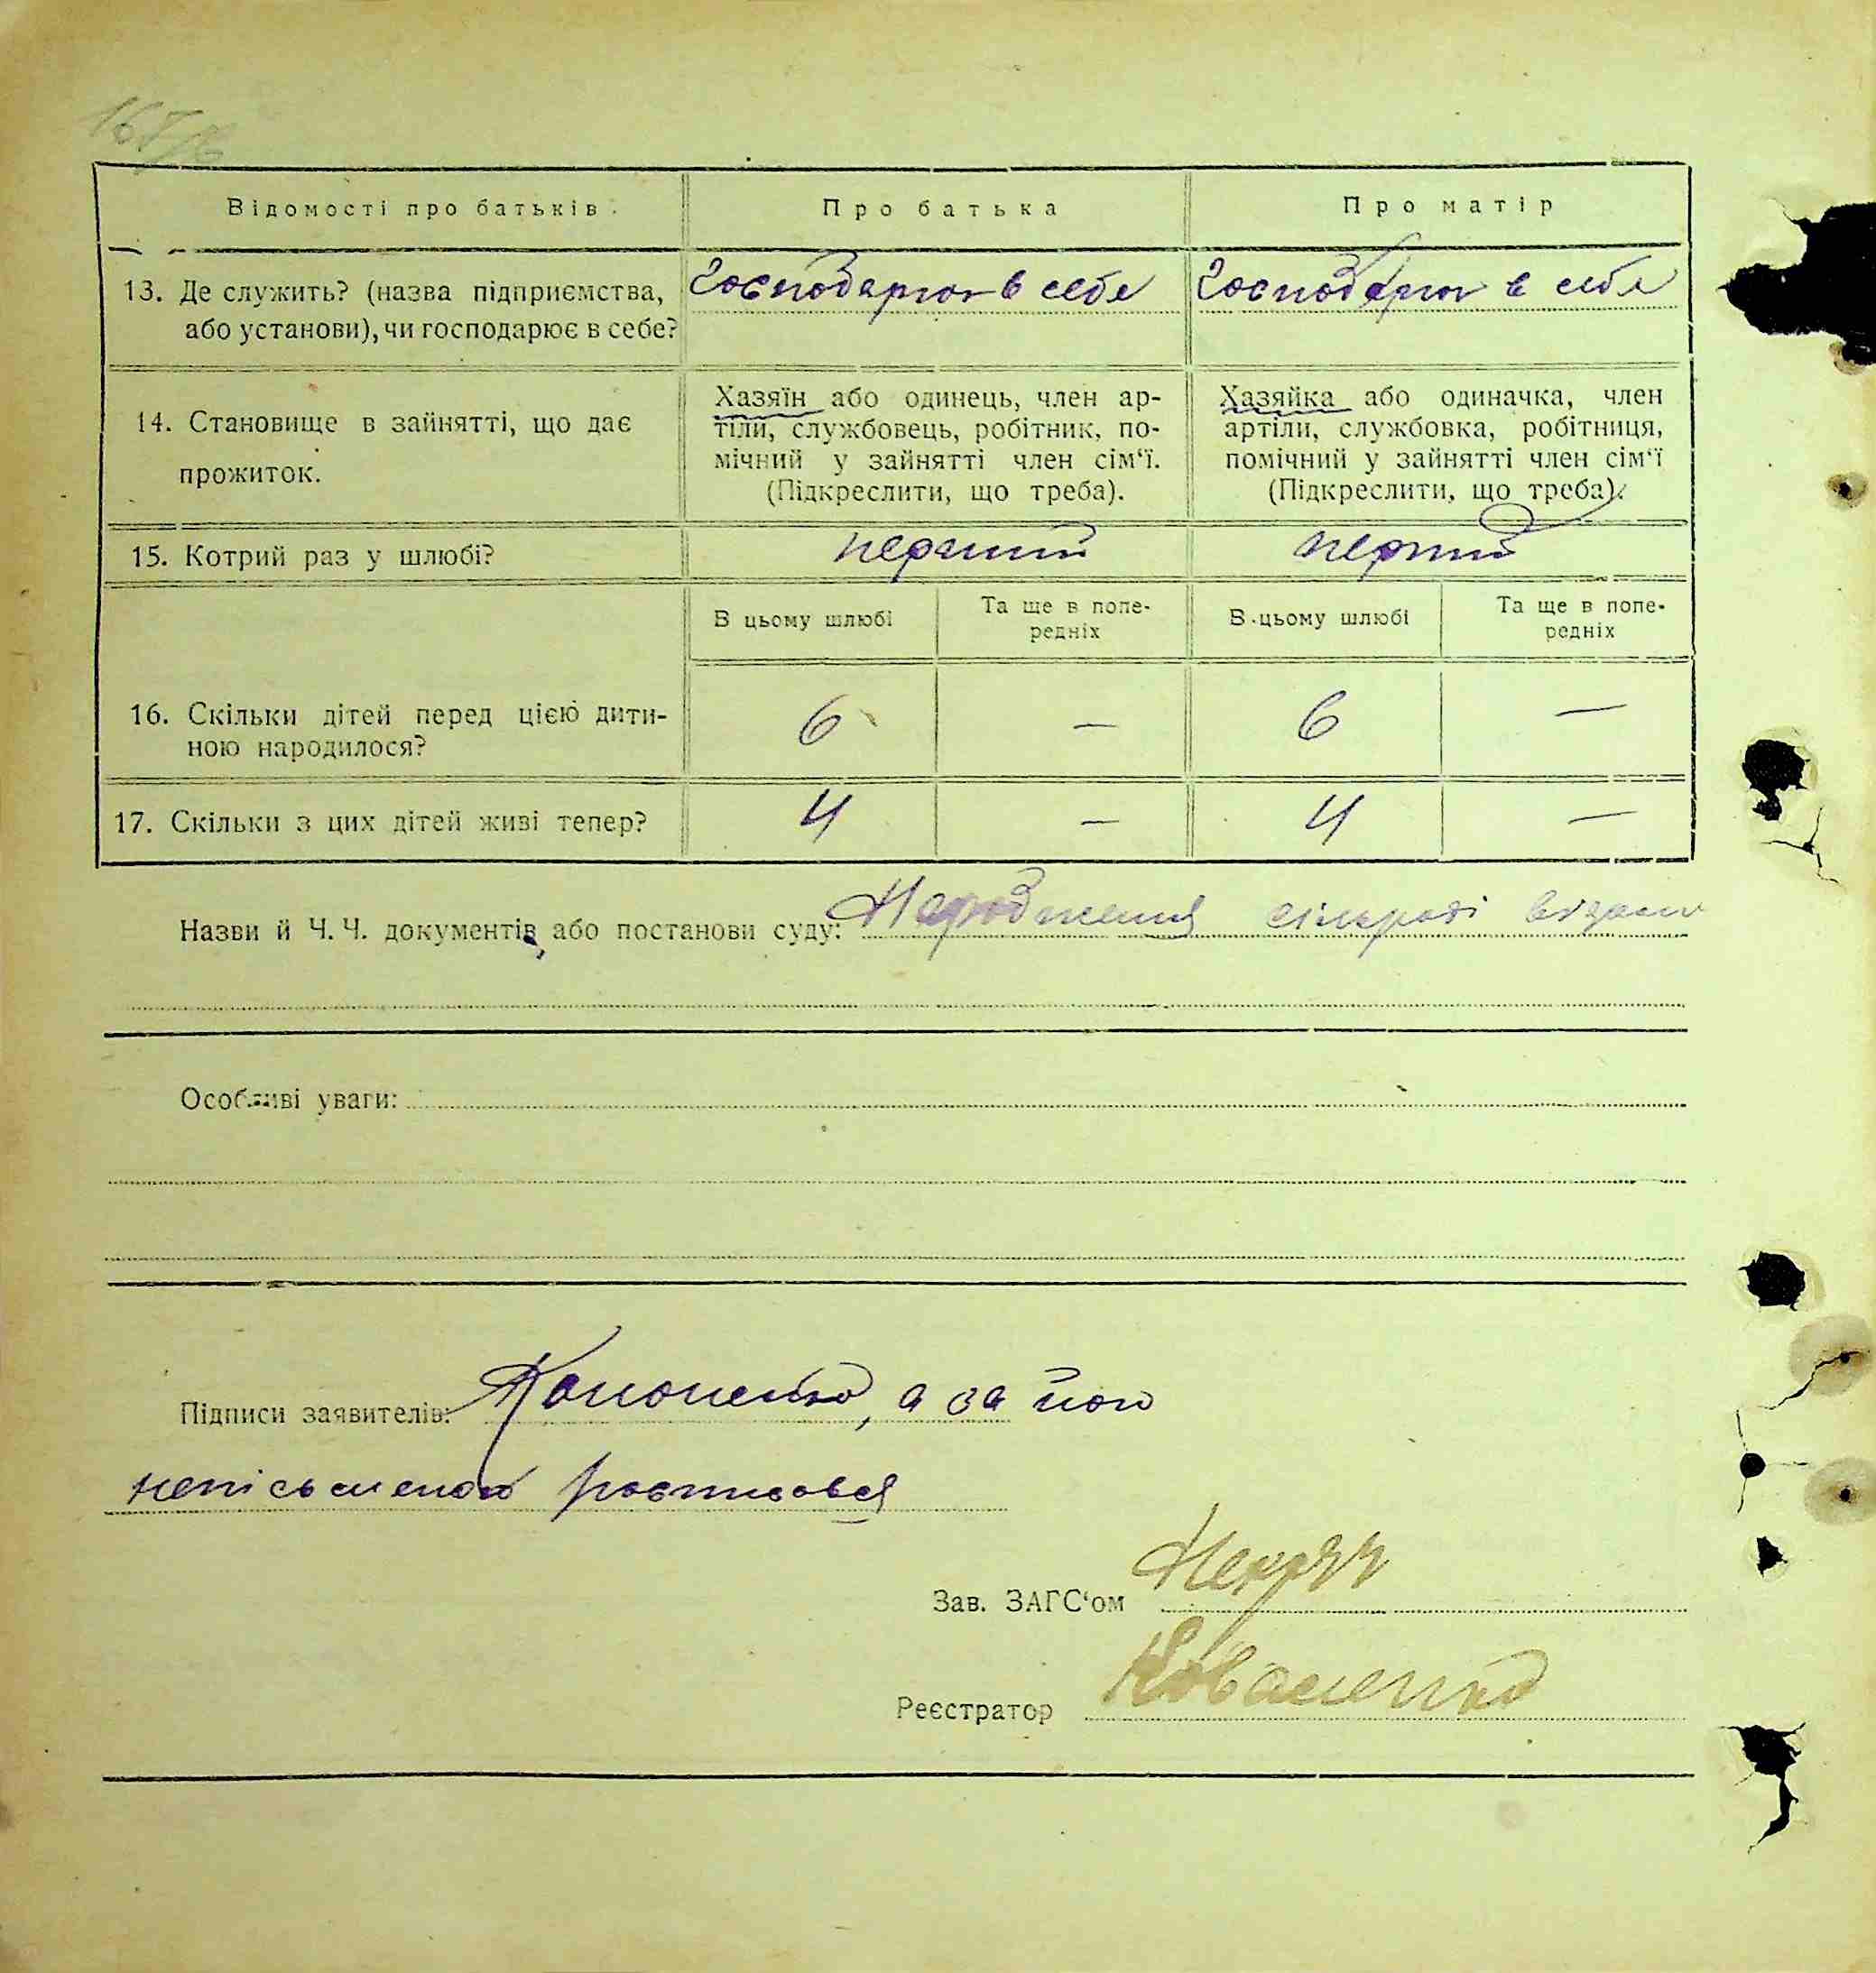 Відомості про батьків. Про батька Про матір
13. Де служить? (назва підприємства, або установи), чи господарює в себе? господарює в себе господарює в себе
14. Становище в зайнятті, що дає прожиток.
Хазяїн або одинець, член ар-
тіли, службовець, робітник, по-
мічний у зайнятті член сім‘ї.
(Підкреслити, що треба).
Хазяйка або одиначка, член
артіли, службовка, робітниця,
помічний у зайнятті член сім‘ї
(Підкреслити, що треба).
15. Котрий раз у шлюбі? перший перший
В цьому шлюбі Та ще в попе-
редніх
В цьому шлюбі Та ще в попе-
редніх
16. Скільки дітей перед цією дити-
ною народилося? 6 — 6 —
17. Скільки з цих дітей живі тепер? 4 — 4 —
Назви й Ч. Ч. документів, або постанови суду: Народження сільраді відомо
Особливі уваги:
Підписи заявителів: Кононенко, а за його
неписьменого росписався
Зав. ЗАГС‘ом
Реєстратор Коваленко